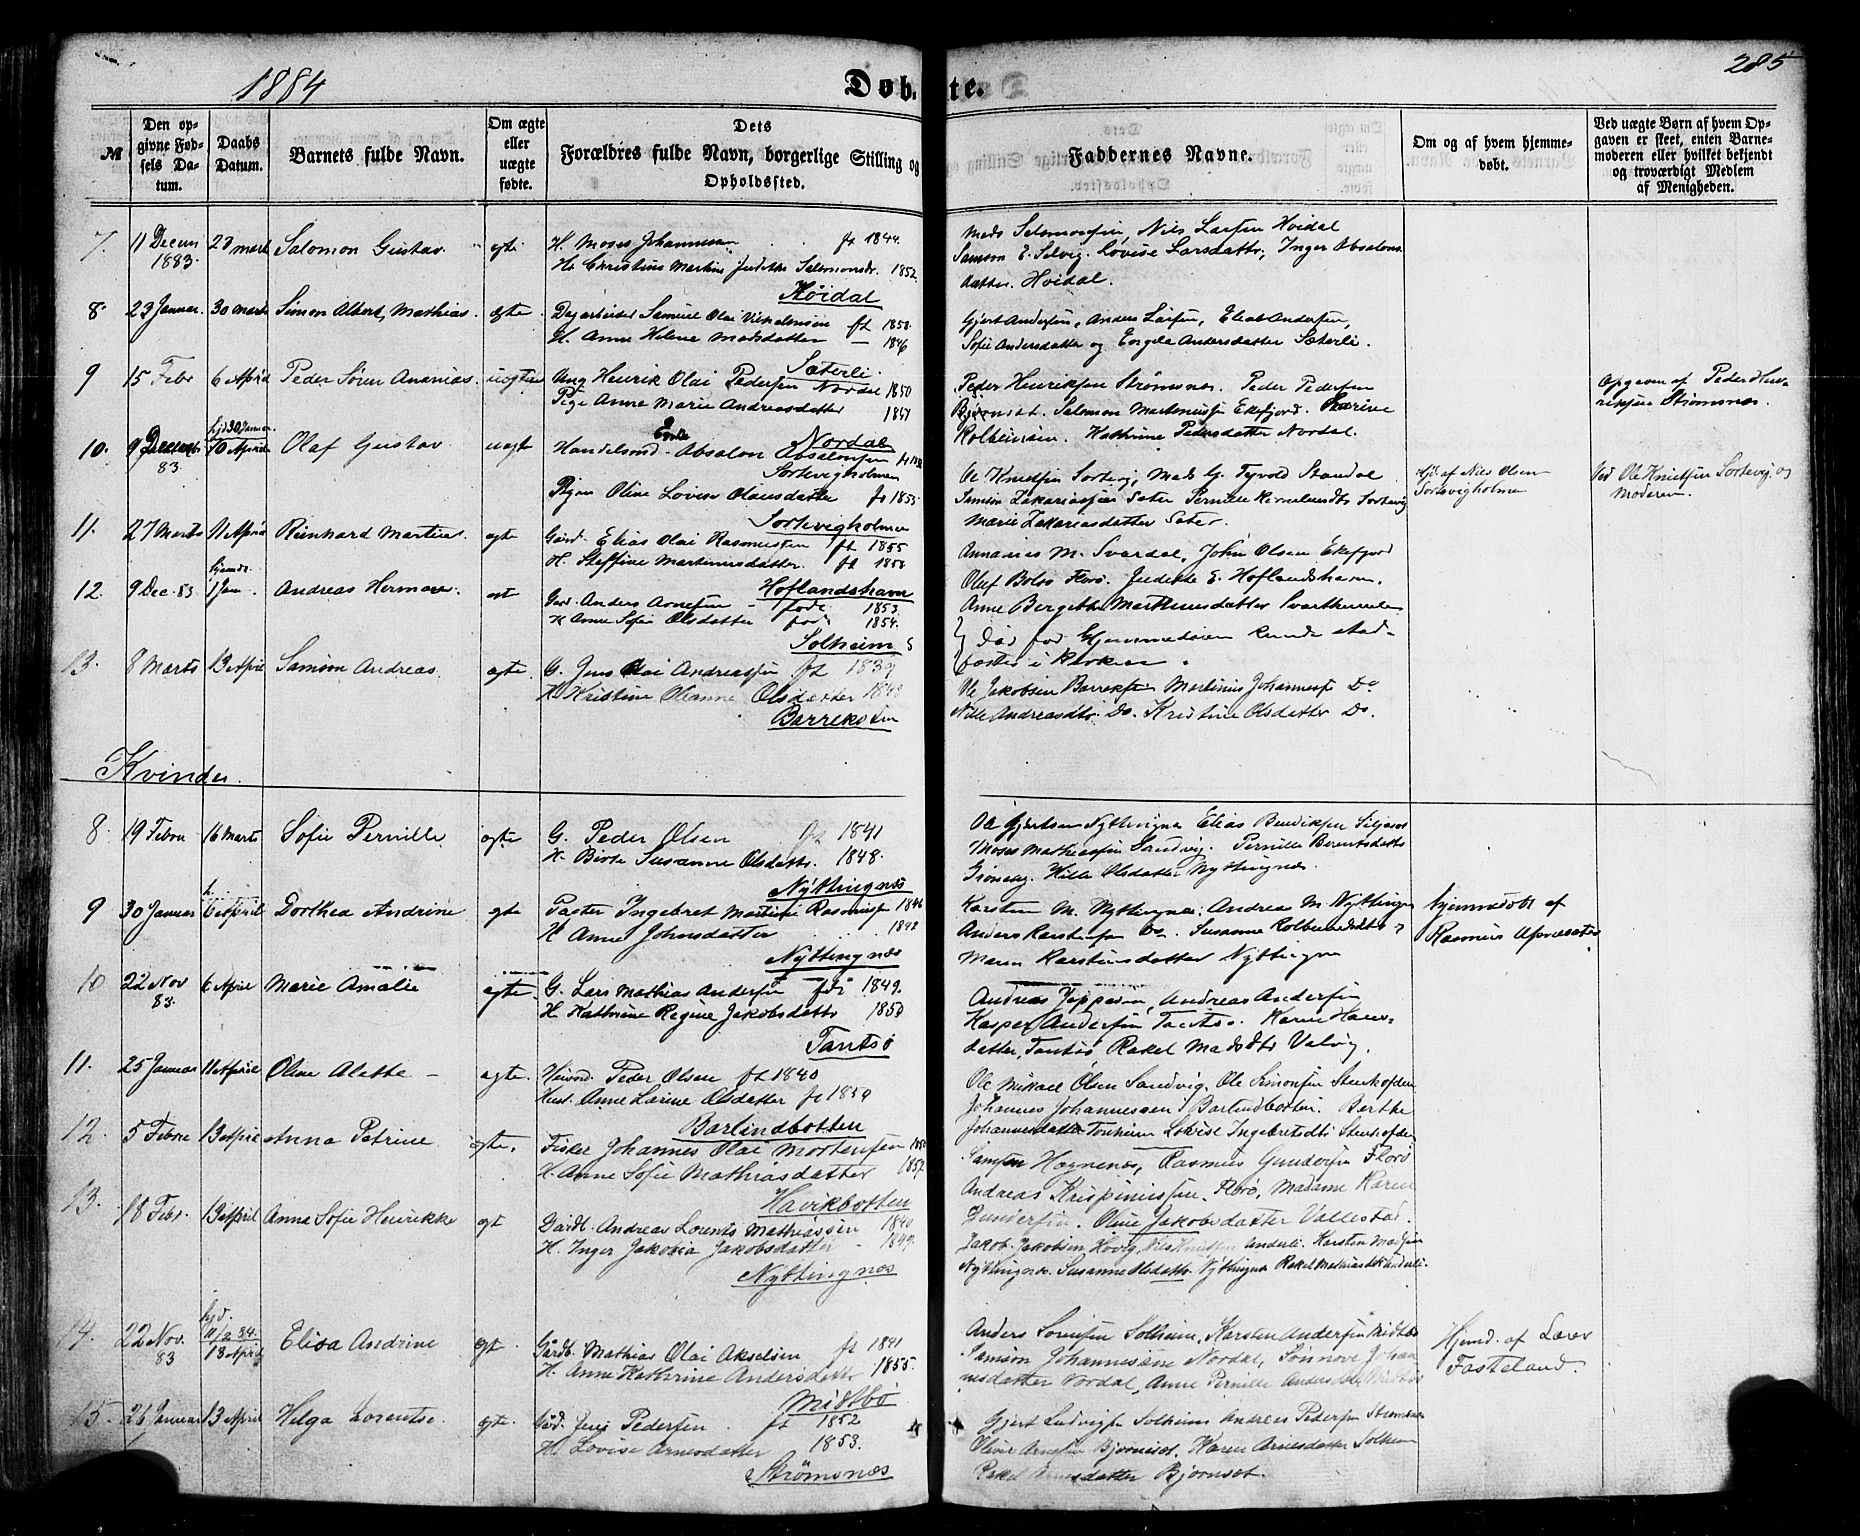 1884
Døbte.
285
№
Den opgivne Fødsels Datum.
Daabs Datum.
Barnets fulde Navn.
Om ægte eller uægte fødte.
Dets Forældres fulde Navn, borgerlige Stilling og Opholdssted.
Faddernes Navne.
Om og af hvem hjemmedøbt.
Ved uægte Børn af hvem Opgaven er skeet, enten Barnemoderen eller hvilket bekjendt og troværdigt Medlem af Menigheden.
7. 11 Decem 1883. 23 marts Salomon Gustav. ægte
H. Moses Johannesen ft 1844.
1852.
Høidal
Mads Salomonsen, Nils Larsen Hvidal
Samson E. Selvig. Lovise Larsdatter, Inger Absalons
datter. Hoidal.
8. 23 Januar. 30 Marts Simon Albert Mathias. ægte
Dagarbeider Samuel Olai ft 1850.
H. Anne Helene Madsdatter — 1846
Sæterli.
Gjert Andersen, Anders Larsen, Elias Andersen,
Sofie Andersdatter og Engele Andersdatter Sæterli.
9 15 Febr 6 April Peder Søren Ananias. uægte
Ung Henrik Olai Pedersen Nordal 1850
Pige Anne Marie Andreasdatter 1857
Nordal
Peder Henriksen Strømsnes. Peder Pedersen
Bjørnset. Salomon Martinussen Ekefjord.
Kathrine Pedersdatter Nordal.
Opgaven af Peder Henriksen Strømsnes.
10. 9 Decem 83 hjd 30 Januar 10 April Olaf Gustav. uægt
Enke
Handelsmd. Absalon Absalonsen
Sortevigholmen
Pigen Oline Lovise Olausdatter ft 1855
Sortevigholmen
Ole Knutsen Sortevig, Mads G. Tyvold Standal
Marie Zakariasdatter Sæter.
hjd. af Nils Olsen Sortevigholmen
Ved Ole Knutsen Sortevig og moderen.
11. 27 Marts 11 April Reinhard Martin. ægte
Gaard. Elias Olai Rasmussen ft 1855
H. Steffine Martinusdatter. ft 1853
Hoflandshavn
Annanias M. Svardal, John Olsen Ekefjord
Oluf Bolsø Florø. Judithe E. Hoflandshavn.
Anne Bergette Marthinusdatter
12. 9 Dec. 83. hjemdt. 1 Jan. Andreas Herman.
Gard. Anders Arnesen født 1853.
H Anne Sofie Olsdatter født 1854.
Solheim
Død før Hjemmedåben kunde stad-
fæstes i kirken.
13. 8 Marts 13 April Samson Andreas. ægte.
G. Jens Olai Andreassen ft 1839
H. Kristine Olsdatter 1849
Barreksten
Ole Jakobsen Barreksten Martinus Johannessen Do
Nille Andreasdtr. Do. Kristine Olsdatter Do.
Kvinder.
8. 19 Febru 16 Marts Sofie Pernille ægte
G. Peder Olsen ft 1841
H. Berte Susanne Olsdatter. 1848.
Nyttingnæs
Ole Gjertsen Nyttingnæs Elias Bendiksen
Moses Mathiassen Sandvig. Pernille Berentsdatter
Hille Olsdatter Nyttingnæs.
9 30 Januar h. 6 April Dorthea Andrine ægte
Ingebret Martinus Rasmussen 1846
H. Anne Johnsdatter 1842
Nyttingnæs
Karsten M. Nyttingnæs. Andreas M. Nyttingnæs
Anders Karstensen Do. Susanne Kolbeinsdatter
Maren Karstensdatter Nyttingnæs
hjemmedøbt af Rasmus
10 22 Nov 83. 6 April Marie Amalie ægte.
G. Lars Mathias Andersen fødj 1849.
H. Kathrine Regine Jakobsdatter 1850
Tansø
Andreas Jeppesen, Andreas Andersen
Kasper Andersen Tansø. Karen Hans-
datter, Tansø Rakel Madsdtr Valvig.
11. 25 Januar 11 April Oline Alette — ægte.
Husmd. Peder Olsen ft 1840
Hust. Anne Larine Olsdatter ft 1850
Barlindbotten
Ole Mikael Olsen Sandvig. Ole Simonsen
Johannes Johannessen Barlindbotten. Berthe
Johannesdatter Lovise Ingebretsdtr
12. 5 Febru 13 April Anna Petrine ægte.
Fisker Johannes Olai Mortensen
H. Anne Sofie Mathiasdatter 1852
Havikbotten
Samson Hognenæs, Rasmus Gundersen Florø
Andreas Krispinussen. Florø, Madame Karen
Gundersen. Oline Jakobsdatter Vallestad.
13. 18 Febr. 13 April Anna Sofie Henrikke ægt
Gårdb. Andreas Lorents Mathiassen 1840
H. Inger Jakobia Jakobsdatter - 1849.
Nyttingnæs
Jakob Jakobsen Hovig, Nils Knutsen Anderli. Karsten Madsen
Nyttingnæs. Susanne Olsdatter. Nyttingnæs Rakel Mathiasdtr Anderli.
14. 22 Nov. 83 hjd. 11/2 84. 13 April Elisa Andrine ægt.
Gårdb. Mathias Olai Akselsen ft 1841
H. Anne Kathrine Andersdatter 1855.
Midtbø
Anders Sørensen Solheim, Karsten Andersen Midtbø
Samson Johannesson Nordal, Sønnove Johan
nesdatter Nordal, Anne Pernille Andersdtr Midtbø
Hjemd. af Lærer Fasteland.
15. 26 Januar 13 April Helga Lorentse. ægte.
Gåd. Jens Pedersen ft 1852
H. Lovise Arnesdatter 1853.
Strømsnæs
Gjert Ludvigsen Solheim Andreas Pedersen Strømsnæs
Oliver Arnesen Bjørnset. Karen Arnesdatter Solheim
Rakel Arnesdatter Bjørnset.